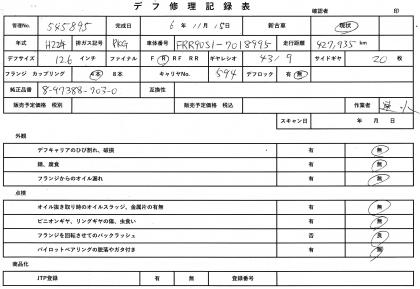 デフ修理記録表
確認者 印
管理No. 545895 完成日 6 年 11 月 15 日 新古車 現状
年式 H22年 排ガス記号 PKG 車体番号 FRR90S1-7018995 走行距離 427,935 km
デフサイズ 12.6 インチ ファイナル F R RF RR ギヤレシオ 43/9 サイドギヤ 20 枚
フランジ カップリング 4本 8本 キャリヤNo. 594 デフロック 有 無
純正品番 8-97388-703-0 互換性
販売予定価格 税別 販売予定価格 税込 作業者
スキャン日 年 月 日
外観
デフキャリアのひび割れ、破損 有 無
錆、腐食 有 無
フランジからのオイル漏れ 有 無
点検
オイル抜き取り時のオイルスラッジ、金属片の有無 有 無
ピニオンギヤ、リングギヤの傷、虫食い 有 無
フランジを回転させてのバックラッシュ 否 良
パイロットベアリングの脱落やガタ付き 有 無
商品化
JTP登録 有 無 登録番号